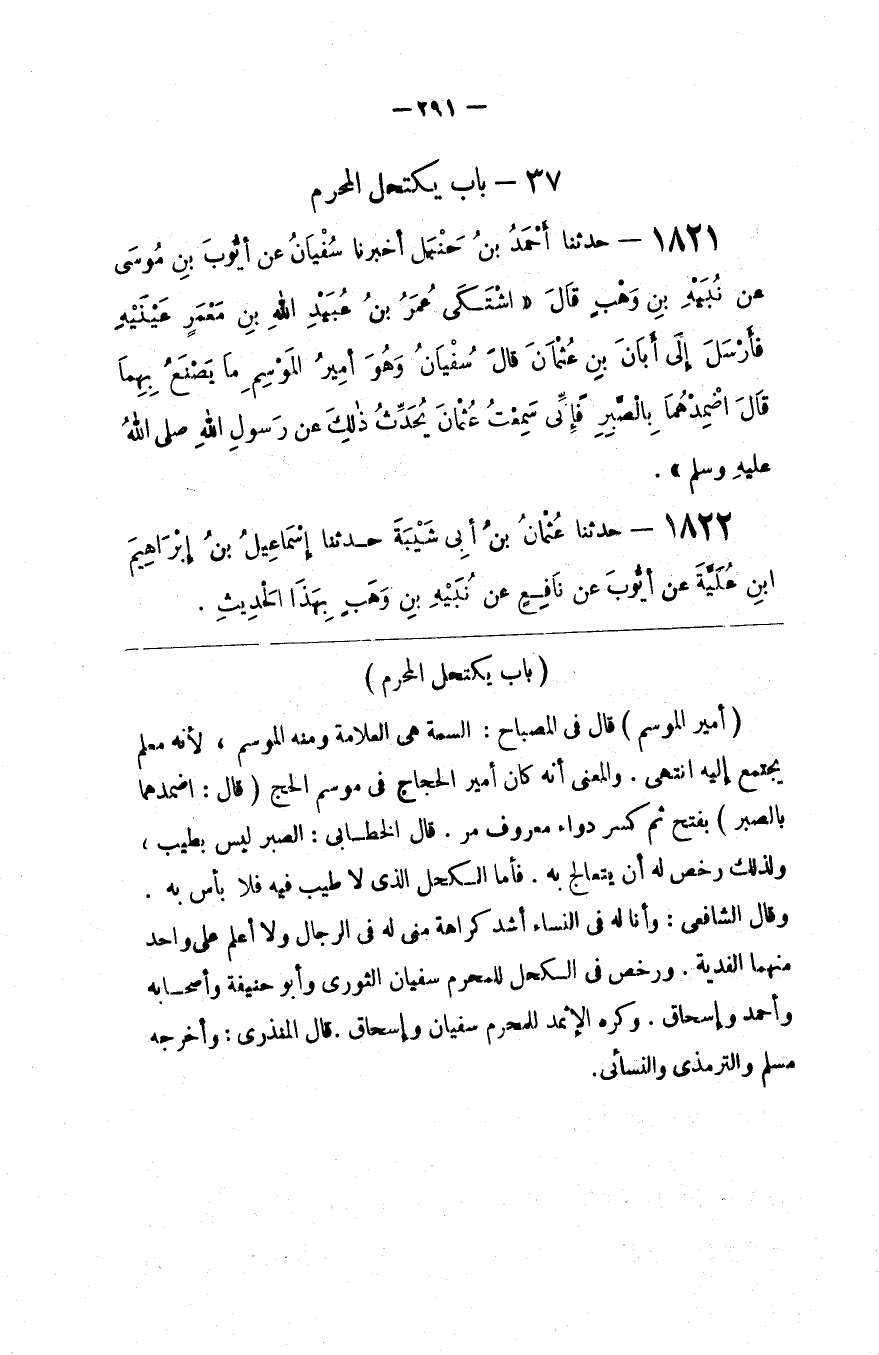 — ٢٩١ —
٣٧ — باب يكتحل المحرم
١٨٢١ — حدثنا أَحْمَدُ بنُ حَنْبَلٍ أخبرنا سُفْيَانُ عن أيُّوبَ بنِ مُوسَى
عن نُبَيْهِ بنِ وَهْبٍ قالَ « اشْتَكَى عُمَرُ بنُ عُبَيْدِ اللهِ بنِ مَعْمَرٍ عَيْنَيْهِ
فأَرْسَلَ إِلَى أَبَانَ بنِ عُثْمَانَ قالَ سُفْيَانُ وَهُوَ أمِيرُ المَوْسِمِ مَا يَصْنَعُ بِهِمَا
قالَ اضْمِدْهُمَا بِالْصَّبِرِ فَإِنِّى سَمِعْتُ عُثْمانَ يُحَدِّثُ ذٰلِكَ عن رَسولِ اللهِ صلى اللهُ
عليهِ وسلم » .
١٨٢٢ — حدثنا عُثْمانُ بنُ أبِى شَيْبَةَ حدثنا إسْمَاعِيلُ بنُ إبْرَاهِيمَ
ابنِ عُلَيَّةَ عن أيُّوبَ عن نَافِعٍ عن نُبَيْهِ بنِ وَهَبٍ بِهَذَا الْحَدِيثِ .
( باب يكتحل المحرم )
( أمير الموسم ) قال فى المصباح : السمة هى العلامة ومنه الموسم ، لأنه معلم
يجتمع إليه انتهى . والمعنى أنه كان أمير الحجاج فى موسم الحج ( قال : اضمدهما
بالصبر ) بفتح ثم كسر دواء معروف مر . قال الخطابى : الصبر ليس بطيب ،
ولذلك رخص له أن يتعالج به . فأما الكحل الذى لا طيب فيه فلا بأس به .
وقال الشافعى : وأنا له فى النساء أشد كراهة منى له فى الرجال ولا أعلم على واحد
منهما الفدية . ورخص فى الكحل للمحرم سفيان الثورى وأبو حنيفة وأصحابه
وأحمد وإسحاق . وكره الإثمد للمحرم سفيان وإسحاق . قال المنذرى : وأخرجه
مسلم والترمذى والنسائى .